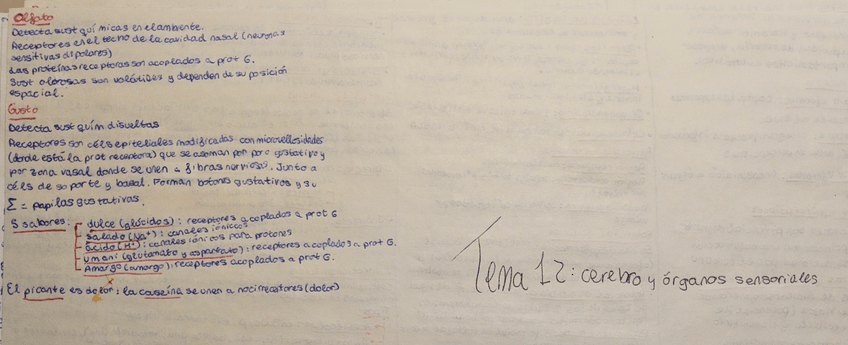 Olfato
Detecta sust químicas en el ambiente.
Receptores en el techo de la cavidad nasal (neuronas
sensitivas dipolares)
Las proteínas receptoras son acopladas a prot G.
Sust olorosas son volátiles y dependen de su posición
espacial.
Gusto
Detecta sust quím disueltas
Receptores son céls epiteliales modificadas con microvellosidades
(donde está la prot receptora) que se asoman por poro gustativo y
por zona vasal donde se unen a fibras nerviosas. Junto a
céls de soporte y basal. Forman botones gustativos y su
Σ = papilas gustativas.
5 sabores: dulce (glúcidos): receptores acoplados a prot G
salado (Na⁺): canales iónicos
ácido (H⁺): canales iónicos para protones
umami (glutamato y aspartato): receptores acoplados a prot G.
Amargo (amargo): receptores acoplados a prot G.
El picante es dolor: la causeína se unen a nocirreceptores (dolor)
Tema 12: cerebro y órganos sensoriales